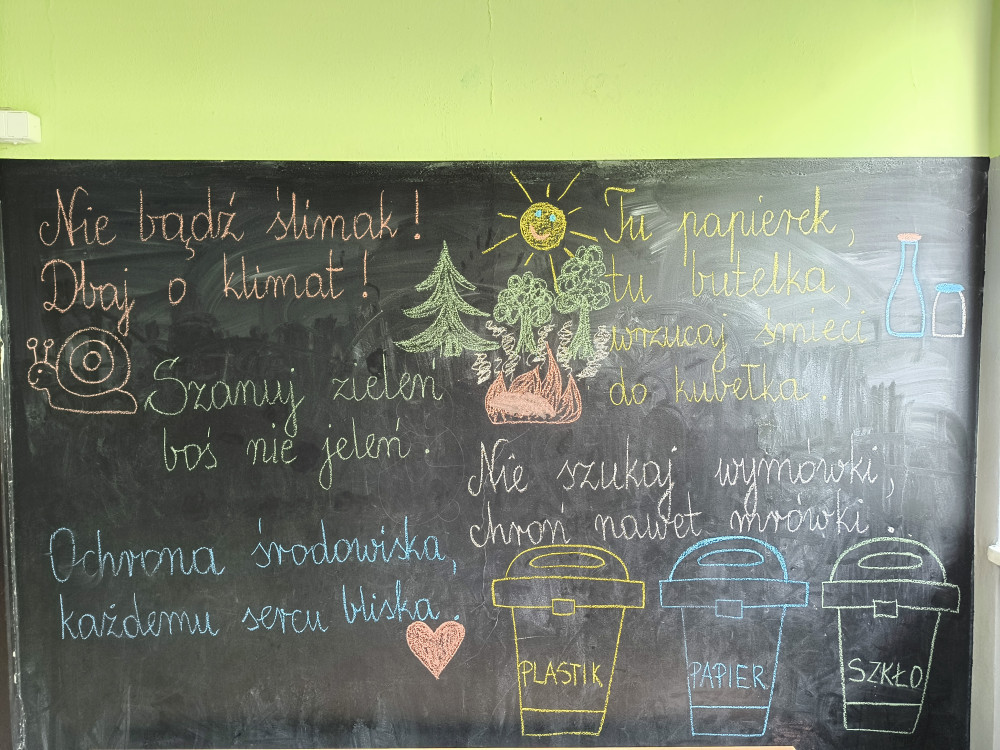 Nie bądź ślimak!
Dbaj o klimat!
Szanuj zieleń
boś nie jeleń.
Ochrona środowiska,
każdemu sercu bliska.
Tu papierek,
tu butelka,
wrzucaj śmieci
do kubełka.
Nie szukaj wymówki,
chroń nawet mrówki.
PLASTIK
PAPIER
SZKŁO